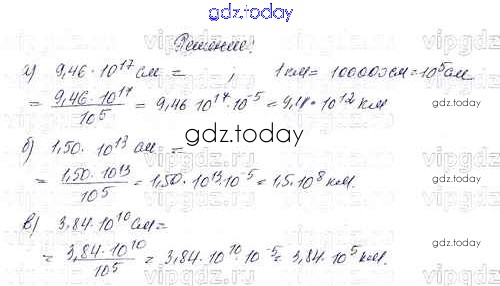 gdz.today
Решение!
а) 9,46 · 10^17 см = ; 1 км = 100000 см = 10^5 см
= 9,46 · 10^17 / 10^5 = 9,46 · 10^17 · 10^-5 = 10^12 км
gdz.today
б) 1,50 · 10^13 см =
= 1,50 · 10^13 / 10^5 = 1,50 · 10^13 · 10^-5 = 1,5 · 10^8 км.
в) 3,84 · 10^10 см =
gdz.today
= 3,84 · 10^10 / 10^5 = 3,84 · 10^10 · 10^-5 = 3,84 · 10^5 км.
gdz.today